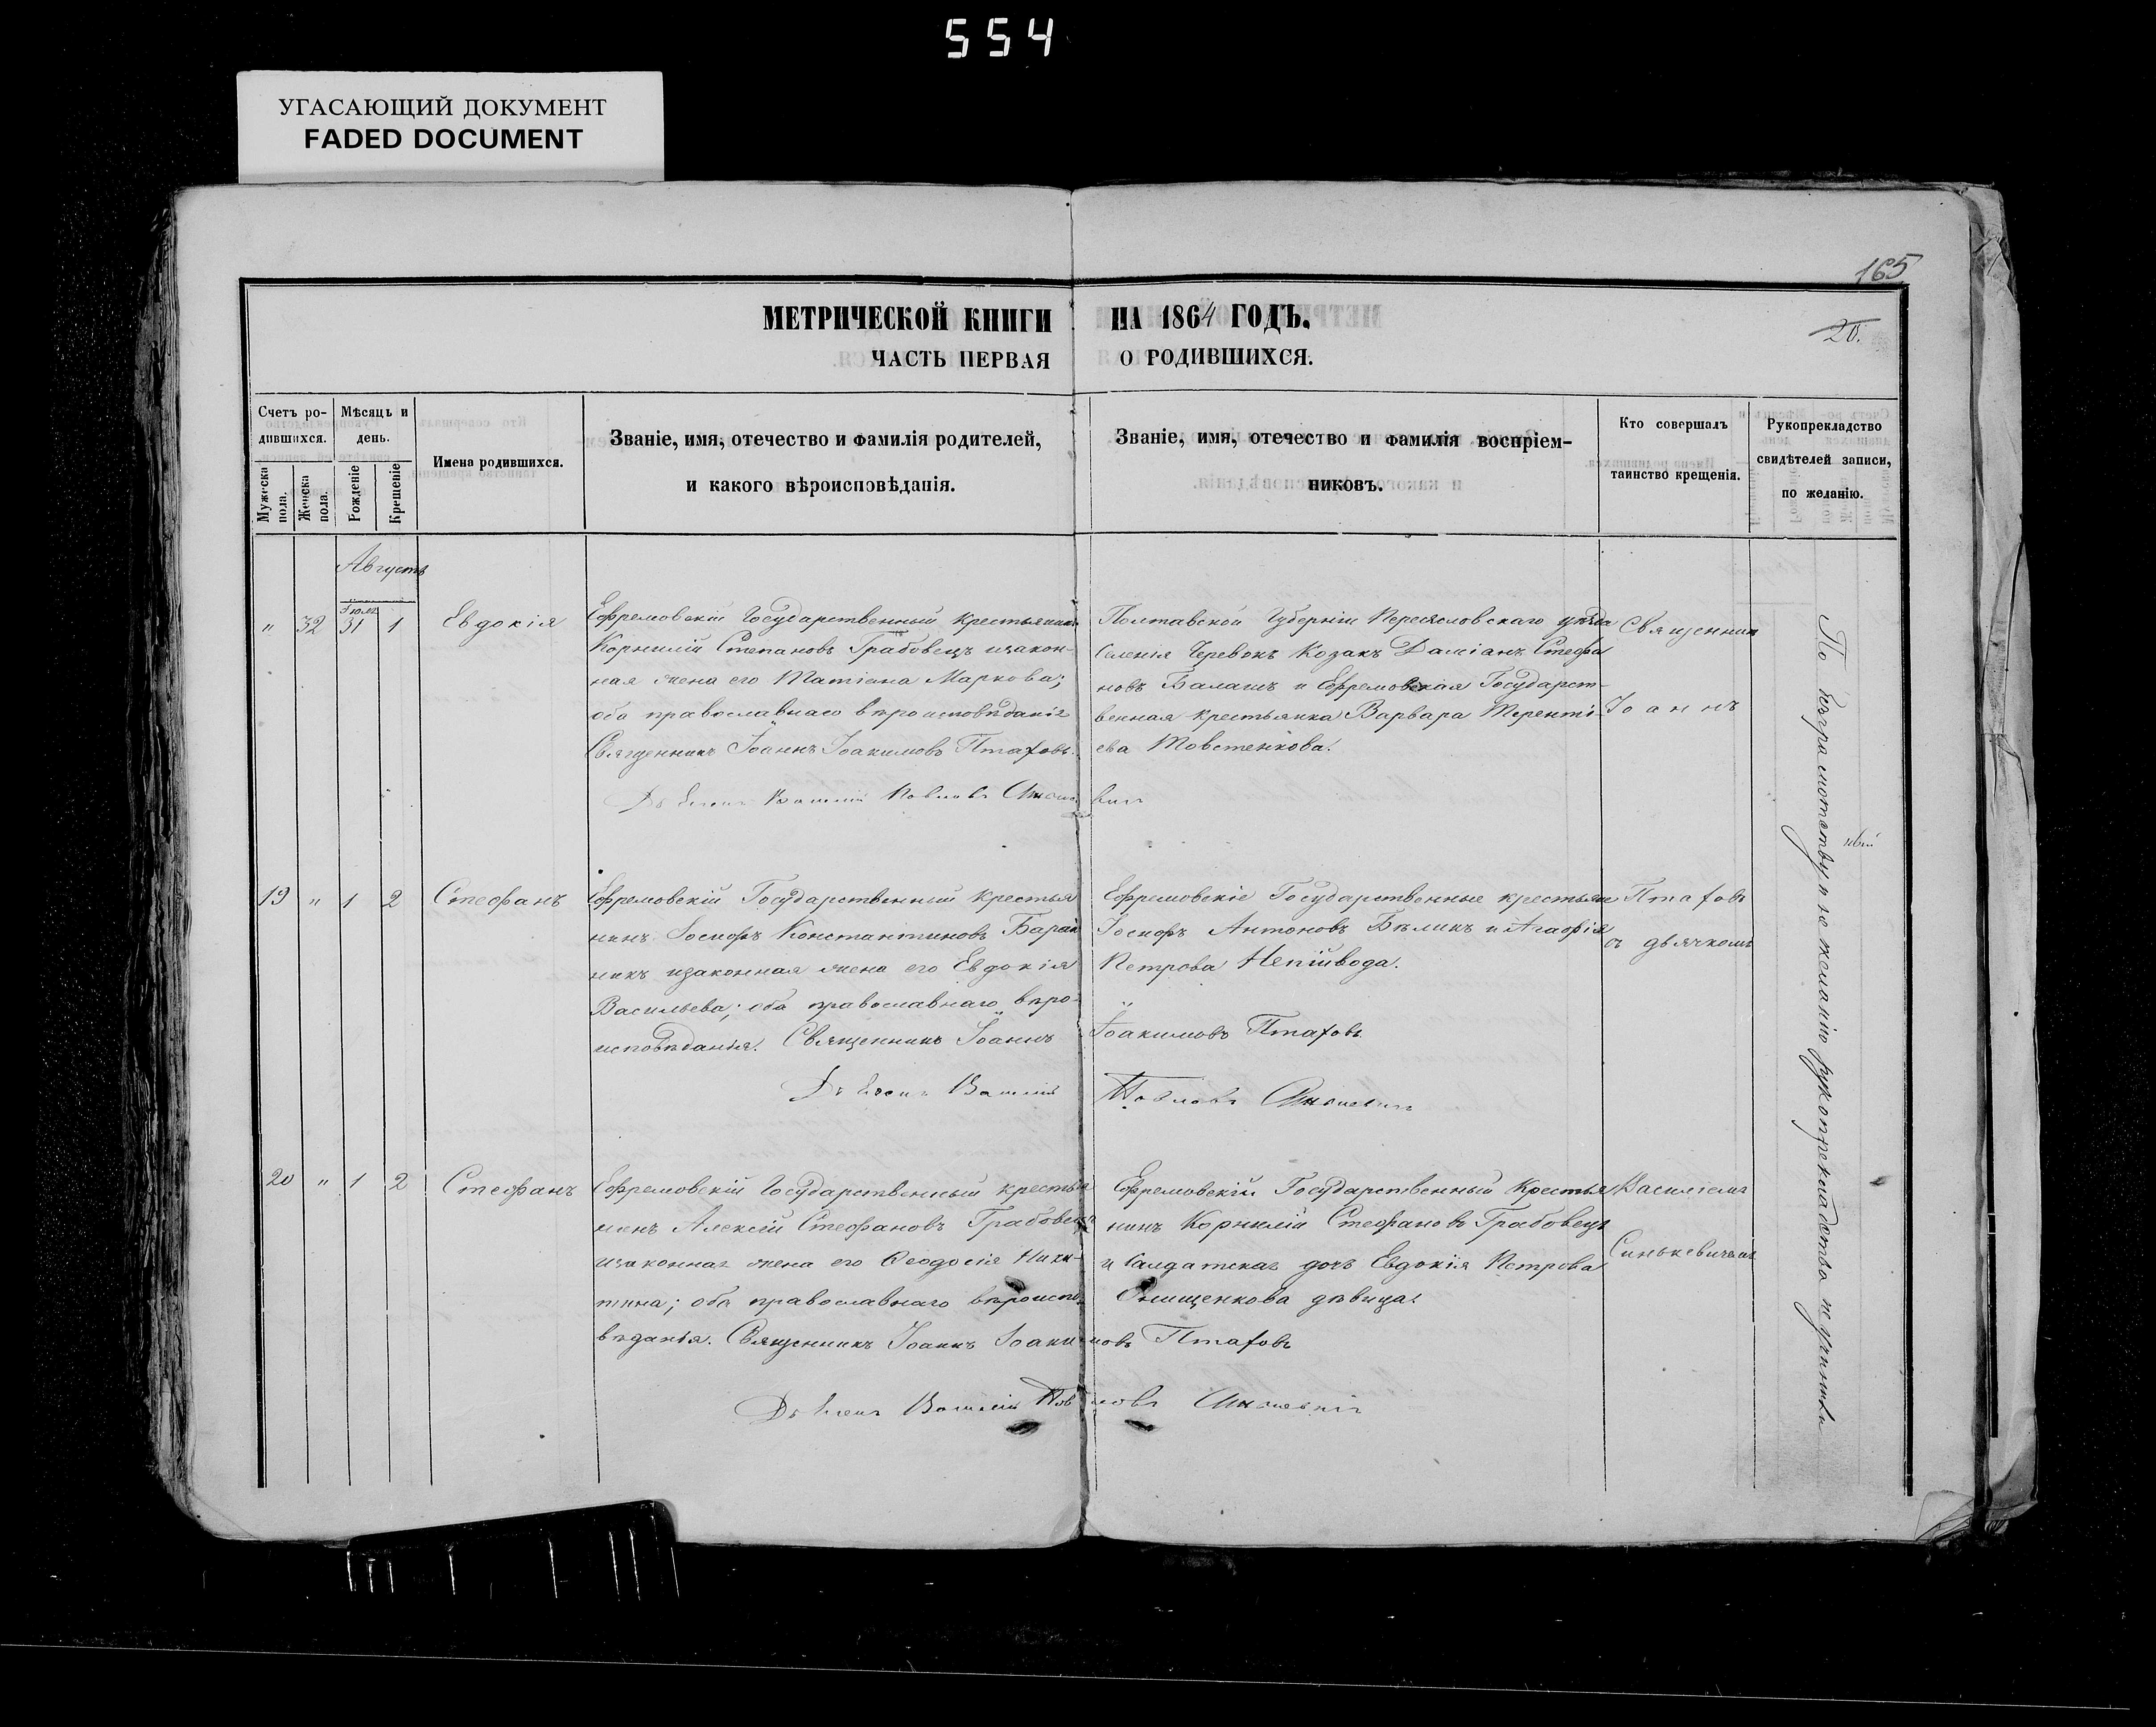 554
УГАСАЮЩИЙ ДОКУМЕНТ
FADED DOCUMENT
165
МЕТРИЧЕСКОЙ КНИГИ НА 1864 ГОДЪ.
20.
ЧАСТЬ ПЕРВАЯ О РОДИВШИХСЯ.
Счетъ ро-
дившихся.
Мужеска пола.
Женска пола.
Мѣсяцъ и
день.
Рожденіе
Крещеніе
Имена родившихся.
Званіе, имя, отечество и фамилія родителей,
и какого вѣроисповѣданія.
Званіе, имя, отечество и фамилія воспріем-
никовъ.
Кто совершалъ
таинство крещенія.
Рукоприкладство
свидѣтелей записи,
по желанію.
Августъ
" 32 Іюля 31 1 Евдокія
Ефремовскій Государственный крестьянинъ
Корнилій Степановъ Грабовецъ и закон-
ная жена его Татіана Маркова;
оба православнаго вѣроисповѣданія
Священникъ Іоаннъ Іоакимовъ Птаховъ.
Полтавской Губерніи Переясловскаго уѣзда
Селенія Черевокъ Козакъ Даміанъ Стефа
новъ Балашъ и Ефремовская Государст-
венная крестьянка Варвара Теренті-
ева Товстенкова.
Священник
Іоаннъ
19 " 1 2 Стефанъ
Ефремовскій Государственный крестья
нинъ Іосифъ Константиновъ Баран
никъ и законная жена его Евдокія
Васильева; оба православнаго вѣро-
исповѣданія. Священникъ Іоаннъ Іоакимовъ Птаховъ
Ефремовскіе Государственные крестьяне
Іосифъ Антоновъ Бѣликъ и Агафія
Петрова Непійвода.
Птаховъ
съ дьячкомъ
20 " 1 2 Стефанъ
Ефремовскій Государственный крестья
нинъ Алексій Стефановъ Грабовецъ
и законная жена его Феодосія Ники-
тина; оба православнаго вѣроиспо
вѣданія. Священникъ Іоаннъ Іоакимовъ Птаховъ
Ефремовскій Государственный Крестья
нинъ Корнилій Стефановъ Грабовецъ
и Салдатская дочь Евдокія Петрова
Онищенкова дѣвица.
Василіемъ
Синькевичемъ
По безграмотству и не желанію рукоприкладство не учинили